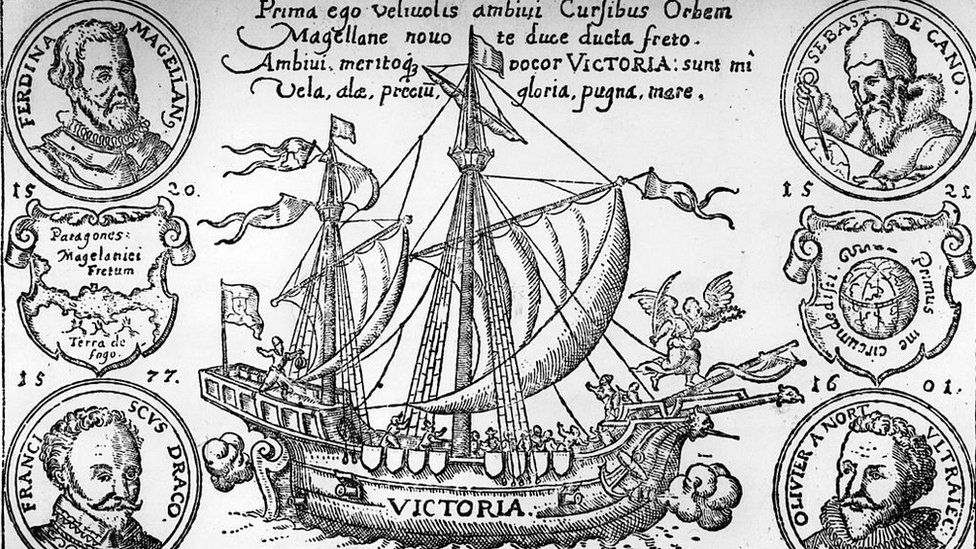 Prima ego veliuolis ambiui Curſibus Orbem
Magellane nouo te duce ducta freto.
Ambiui. meritoq; vocor VICTORIA: sunt mî
Vela, alæ, preciũ, gloria, pugna, mare.
FERDINA MAGELLAN
SEBAST. DE CANO.
15 20.
15 25
Paragones:
Magelanici
Fretum
Terra de
fogo.
Primus me circumdedisti
15 77.
16 01.
FRANCISCVS DRACO.
OLIVIER A NORT VLTRAIEC
VICTORIA.